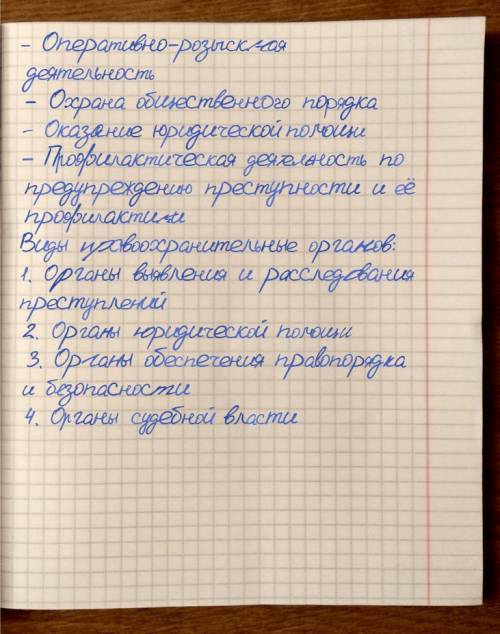 - Оперативно-розыскная
деятельность
- Охрана общественного порядка
- Оказание юридической помощи
- Профилактическая деятельность по
предупреждению преступности и её
профилактики
Виды правоохранительные органов:
1. Органы выявления и расследования
преступлений
2. Органы юридической помощи
3. Органы обеспечения правопорядка
и безопасности
4. Органы судебной власти